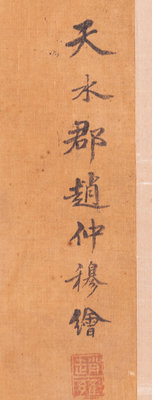 天水郡趙仲穆繪